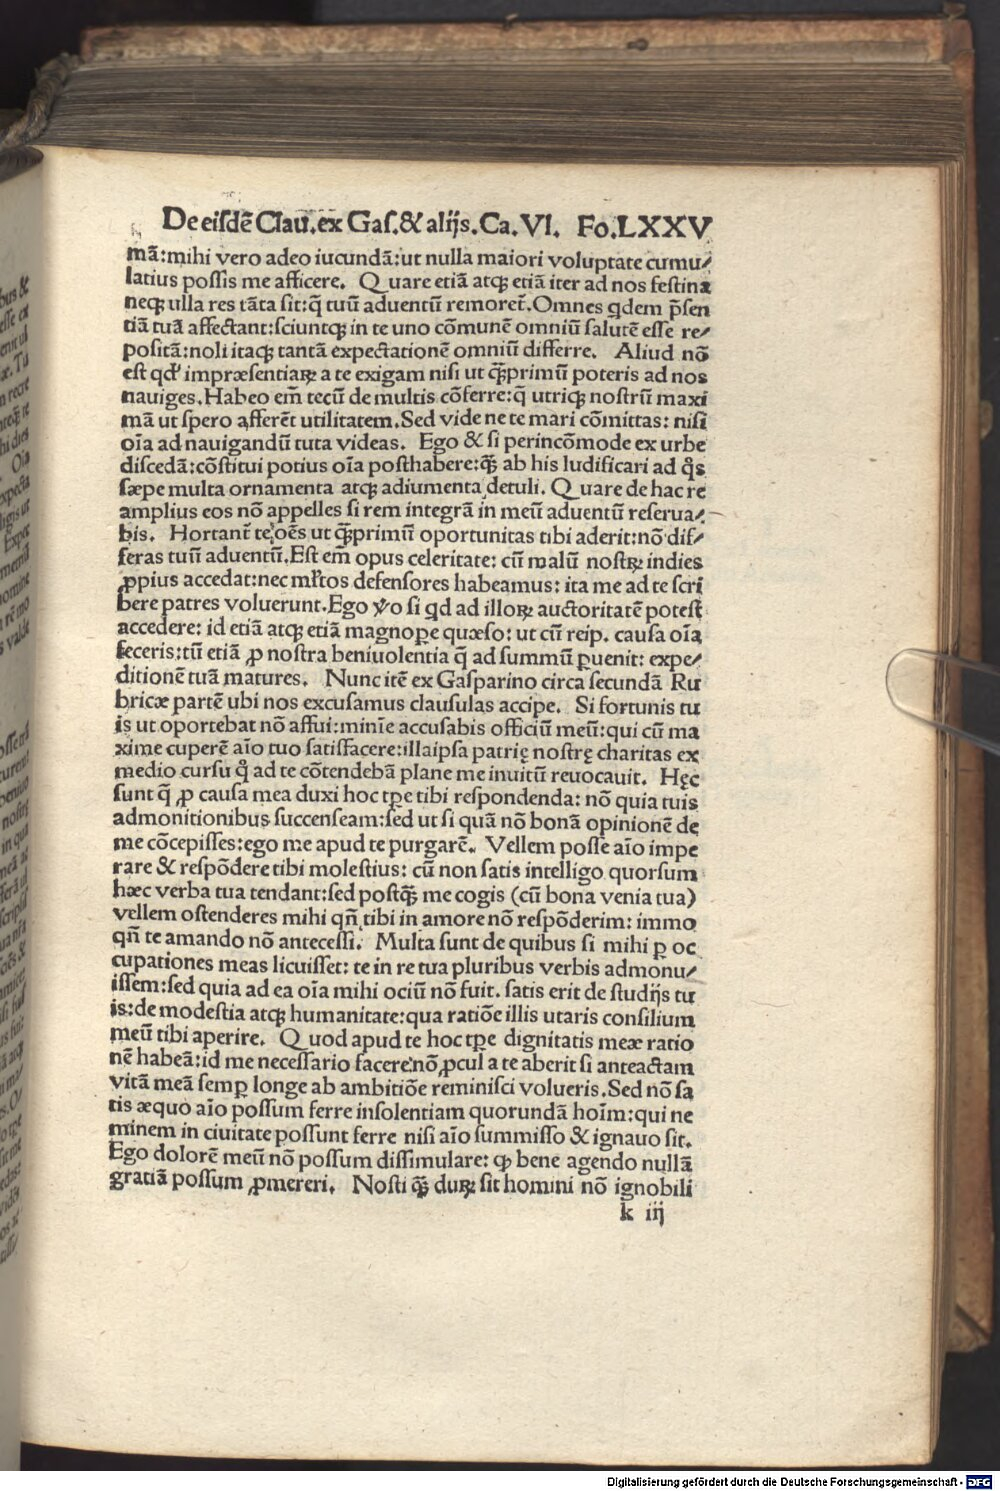 De eiſdē Clau. ex Gaſ. & alijs. Ca. VI. Fo. LXXV
mā: mihi vero adeo iucundā: ut nulla maiori voluptate cumu⸗
latius poſſis me afficere. Quare etiā atqꝫ etiā iter ad nos feſtina
neqꝫ ulla res tāta ſit: q̄ tuū aduentū remoret᷑. Omnes qdem p̄ſen
tiā tuā affectant: ſciuntqꝫ in te uno cōmunē omniū ſalutē eſſe re⸗
poſitā: noli itaqꝫ tantā expectationē omniū differre. Aliud nō
eſt qd' impræſentiaꝝ a te exigam niſi ut q̄ꝫprimū poteris ad nos
nauiges. Habeo em̄ tecū de multis cōferre: q̄ utriqꝫ noſtrū maxi
mā ut ſpero afferēt utilitatem. Sed vide ne te mari cōmittas: niſi
oīa ad nauigandū tuta videas. Ego & ſi perincōmode ex urbe
diſcedā: cōſtitui potius oīa poſthabere: q̄ꝫ ab his ludificari ad qͦs
ſæpe multa ornamenta atqꝫ adiumenta detuli. Quare de hac re
amplius eos nō appelles ſi rem integrā in meū aduentū reſerua⸗
bis. Hortant᷑ te oēs ut q̄ꝫprimū oportunitas tibi aderit: nō dif⸗
feras tuū aduentū. Eſt em̄ opus celeritate: cū malū noſtꝝ indies
ꝓpius accedat: nec mľtos defenſores habeamus: ita me ad te ſcri
bere patres voluerunt. Ego ꝟo ſi qd ad illoꝝ auctoritatē poteſt
accedere: id etiā atqꝫ etiā magnoꝑe quæſo: ut cū reip. cauſa oīa
feceris: tū etiā ꝓ noſtra beniuolentia q̄ ad ſummū ꝑuenit: expe⸗
ditionē tuā matures. Nunc itē ex Gaſparino circa ſecundā Ru
bricæ partē ubi nos excuſamus clauſulas accipe. Si fortunis tu
is ut oportebat nō affui: minīe accuſabis officiū meū: qui cū ma
xime cuperē aīo tuo ſatiſfacere: illa ipſa patrię noſtrę charitas ex
medio curſu qͦ ad te cōtendebā plane me inuitū reuocauit. Hęc
ſunt q̄ ꝓ cauſa mea duxi hoc tꝑe tibi reſpondenda: nō quia tuis
admonitionibus ſuccenſeam: ſed ut ſi quā nō bonā opinionē de
me cōcepiſſes: ego me apud te purgarē. Vellem poſſe aīo impe
rare & reſpōdere tibi moleſtius: cū non ſatis intelligo quorſum
hæc verba tua tendant: ſed poſtq̄ꝫ me cogis (cū bona venia tua)
vellem oſtenderes mihi qn̄ tibi in amore nō reſpōderim: immo
qn̄ te amando nō anteceſſi. Multa ſunt de quibus ſi mihi ꝑ oc
cupationes meas licuiſſet: te in re tua pluribus verbis admonu⸗
iſſem: ſed quia ad ea oīa mihi ociū nō fuit. ſatis erit de ſtudijs tu
is: de modeſtia atqꝫ humanitate: qua ratiōe illis utaris conſilium
meū tibi aperire. Quod apud te hoc tꝑe dignitatis meæ ratio
nē habeā: id me neceſſario facere: nō ꝓcul a te aberit ſi anteactam
vitā meā ſemꝑ longe ab ambitiōe reminiſci volueris. Sed nō ſa
tis æquo aīo poſſum ferre inſolentiam quorundā hoīm: qui ne
minem in ciuitate poſſunt ferre niſi aīo ſummiſſo & ignauo ſit.
Ego dolorē meū nō poſſum diſſimulare: ꝙ bene agendo nullā
gratiā poſſum ꝓmereri. Noſti q̄ꝫ duꝝ ſit homini nō ignobili
k iij
Digitalisierung gefördert durch die Deutsche Forschungsgemeinschaft - DFG